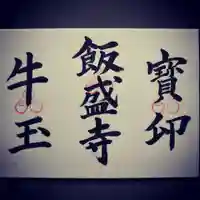 寳印
飯盛寺
牛玉